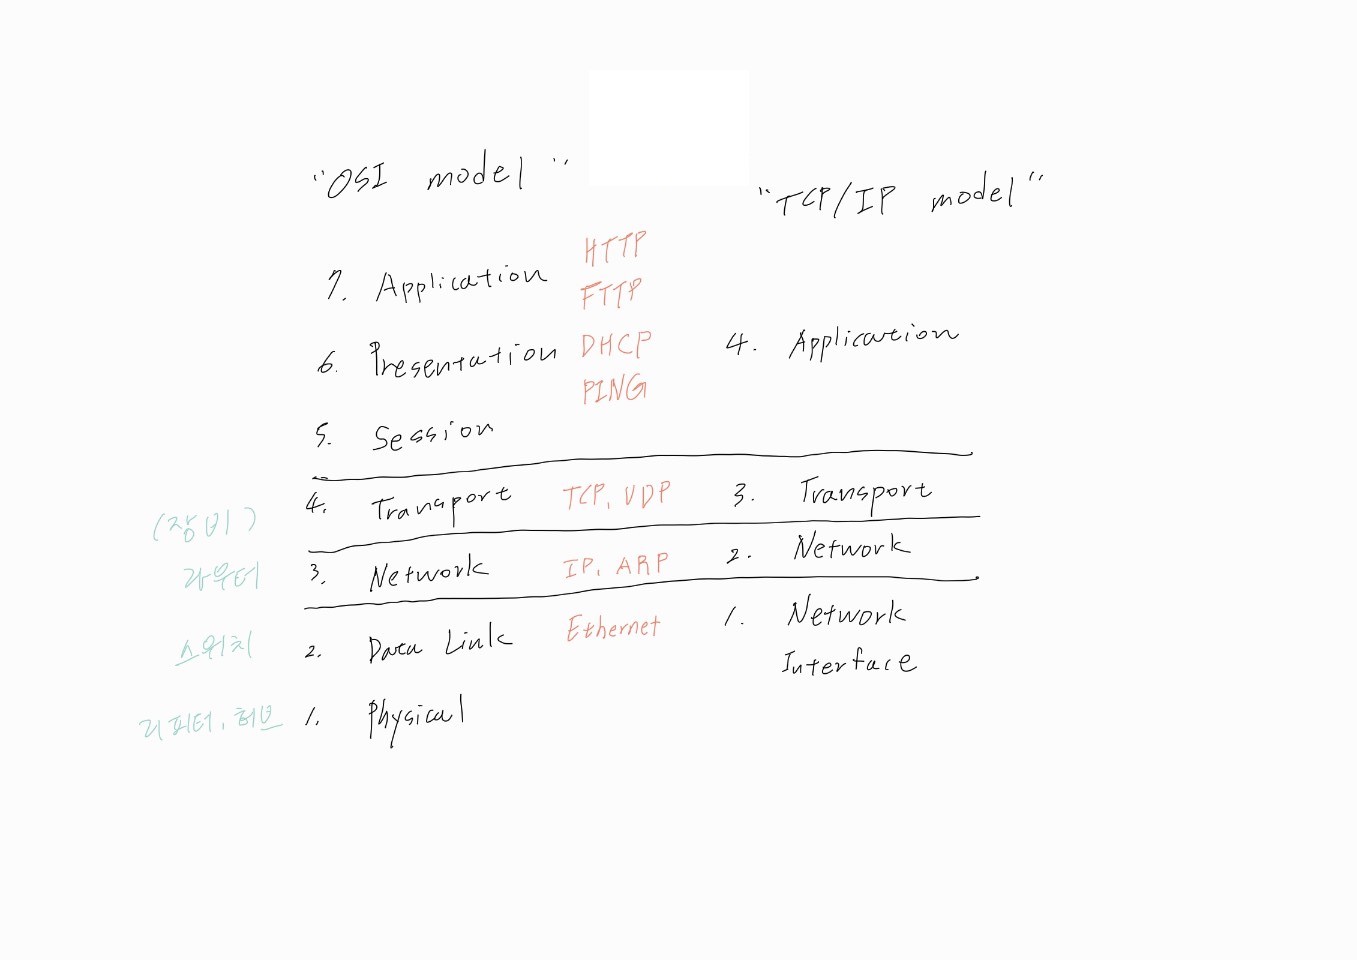 "OSI model"
"TCP/IP model"
HTTP
7. Application
FTTP
6. Presentation DHCP 4. Application
PING
5. Session
4. Transport TCP, UDP 3. Transport
(장비)
라우터 3. Network IP, ARP 2. Network
스위치 2. Data Link Ethernet 1. Network
Interface
리피터, 허브 1. Physical